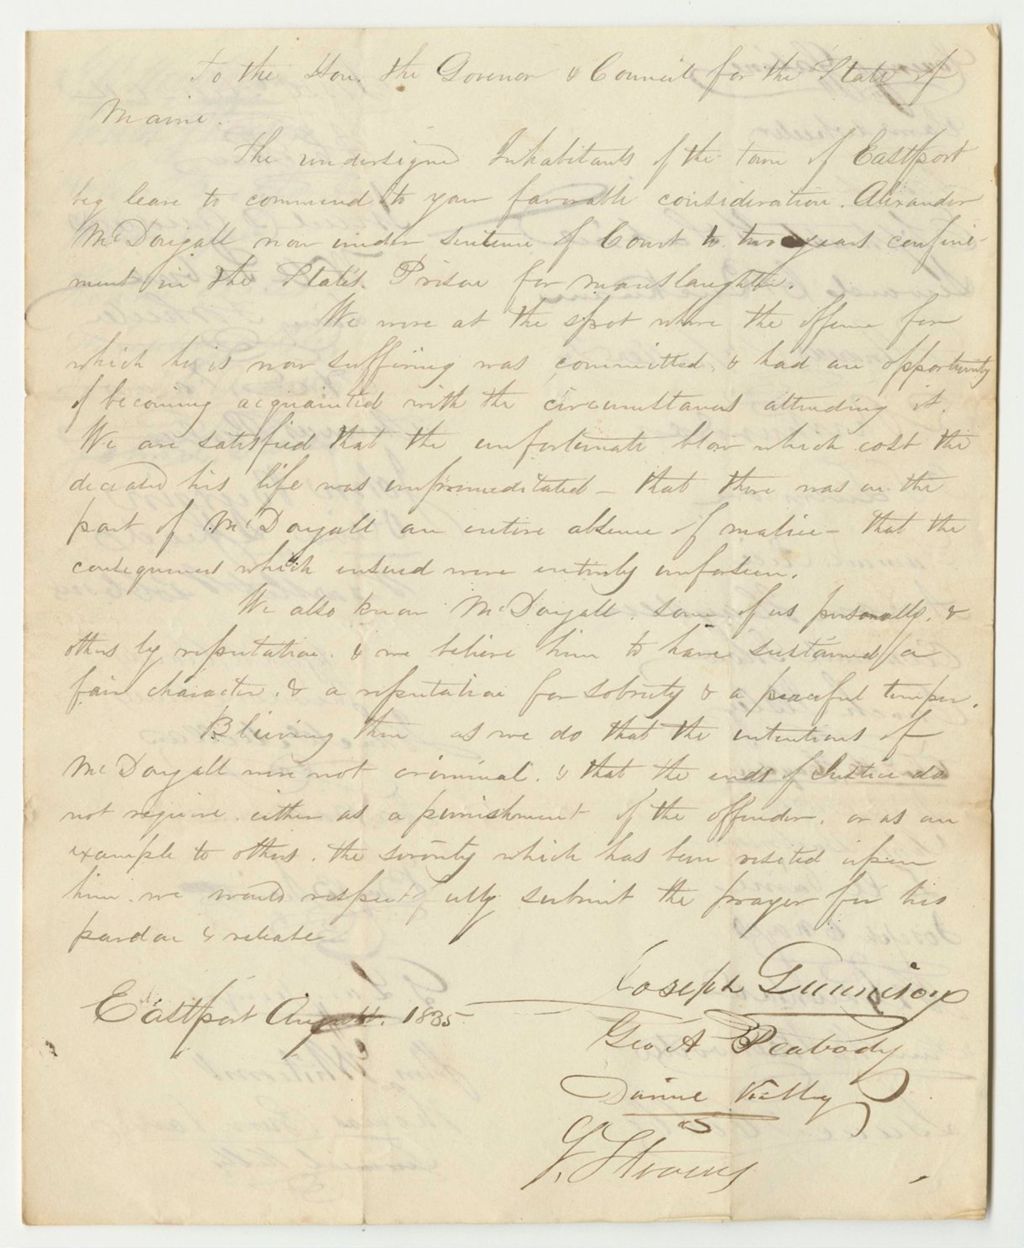 To the Hon. the Govenor & Council for the State of
Maine.
The undersigned Inhabitants of the town of Eastport
beg leave to commend to your favorable consideration. Alexander
McDougall now under sentence of Court to two years confine-
ment in the State's Prison for manslaughter.
We were at the spot where the offense for
which he is now suffering was committed, & had an opportunity
of becoming acquainted with the circumstances attending it.
We are satisfied that the unfortunate blow which cost the
deceased his life was unpremeditated - that there was on the
part of McDougall an entire absence of malice - that the
consequences which ensued were entirely unforseen.
We also know McDougall. some of us personally, &
others by reputation. & we believe him to have sustained a
fair character, & a reputation for sobriety & a peaceful temper.
Believing then as we do that the intentions of
McDougall were not criminal. & that the ends of Justice do
not require. either as a punishment of the offender, or as an
example to others. the severity which has been visited upon
him. we would respectfully submit the prayer for his
pardon & release
Joseph Gunnison
Eastport August. 1835
Geo. A Peabody